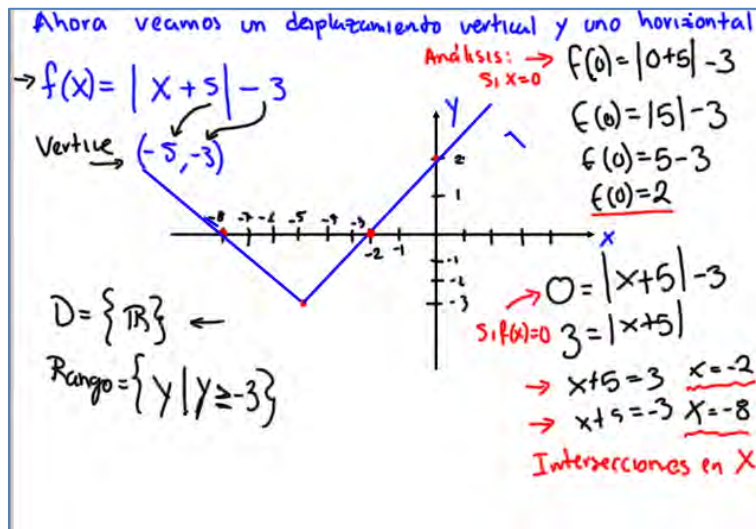 Ahora veamos un desplazamiento vertical y uno horizontal
→ f(x) = | x + 5 | - 3
Vertice → (-5, -3)
Análisis: → f(0) = |0+5| - 3
Si x=0
f(0) = |5| - 3
f(0) = 5 - 3
f(0) = 2
y
2
1
-8 -7 -6 -5 -4 -3 -2 -1
x
-1
-2
-3
D = {ℝ} ←
Rango = {y | y ≥ -3}
→ 0 = |x+5| - 3
Si f(x)=0
3 = |x+5|
→ x+5 = 3 x = -2
→ x+5 = -3 x = -8
Intersecciones en X